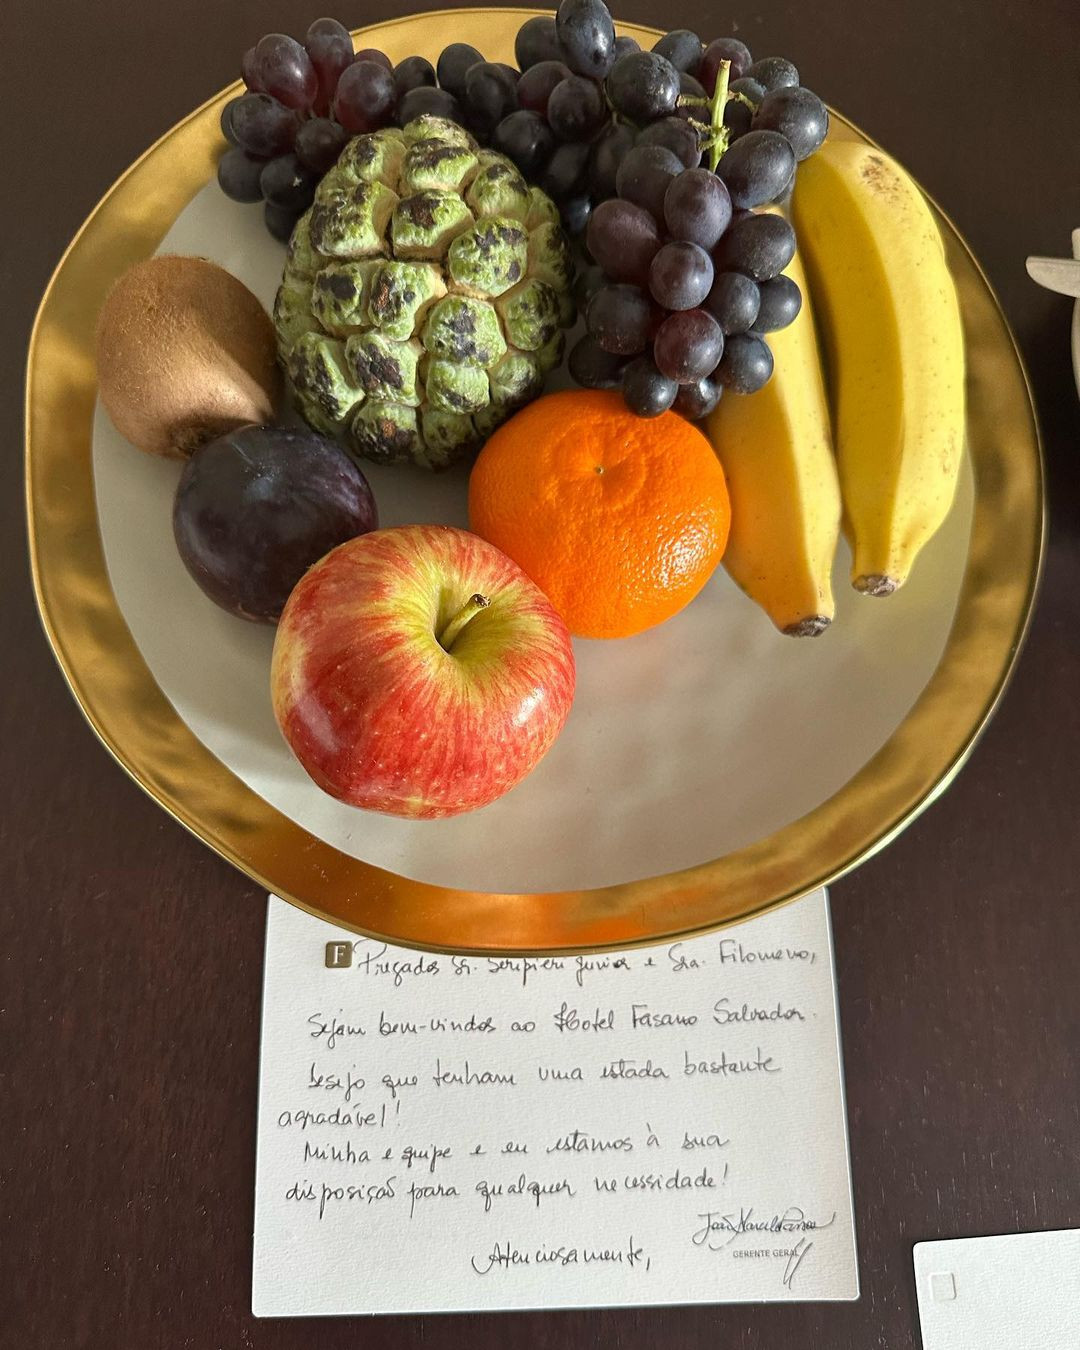 F
Prezados Sr. Seripieri Junior e Sra. Filomeno,
Sejam bem-vindos ao Hotel Fasano Salvador.
Desejo que tenham uma estada bastante
agradável!
Minha equipe e eu estamos à sua
disposição para qualquer necessidade!
GERENTE GERAL
Atenciosamente,